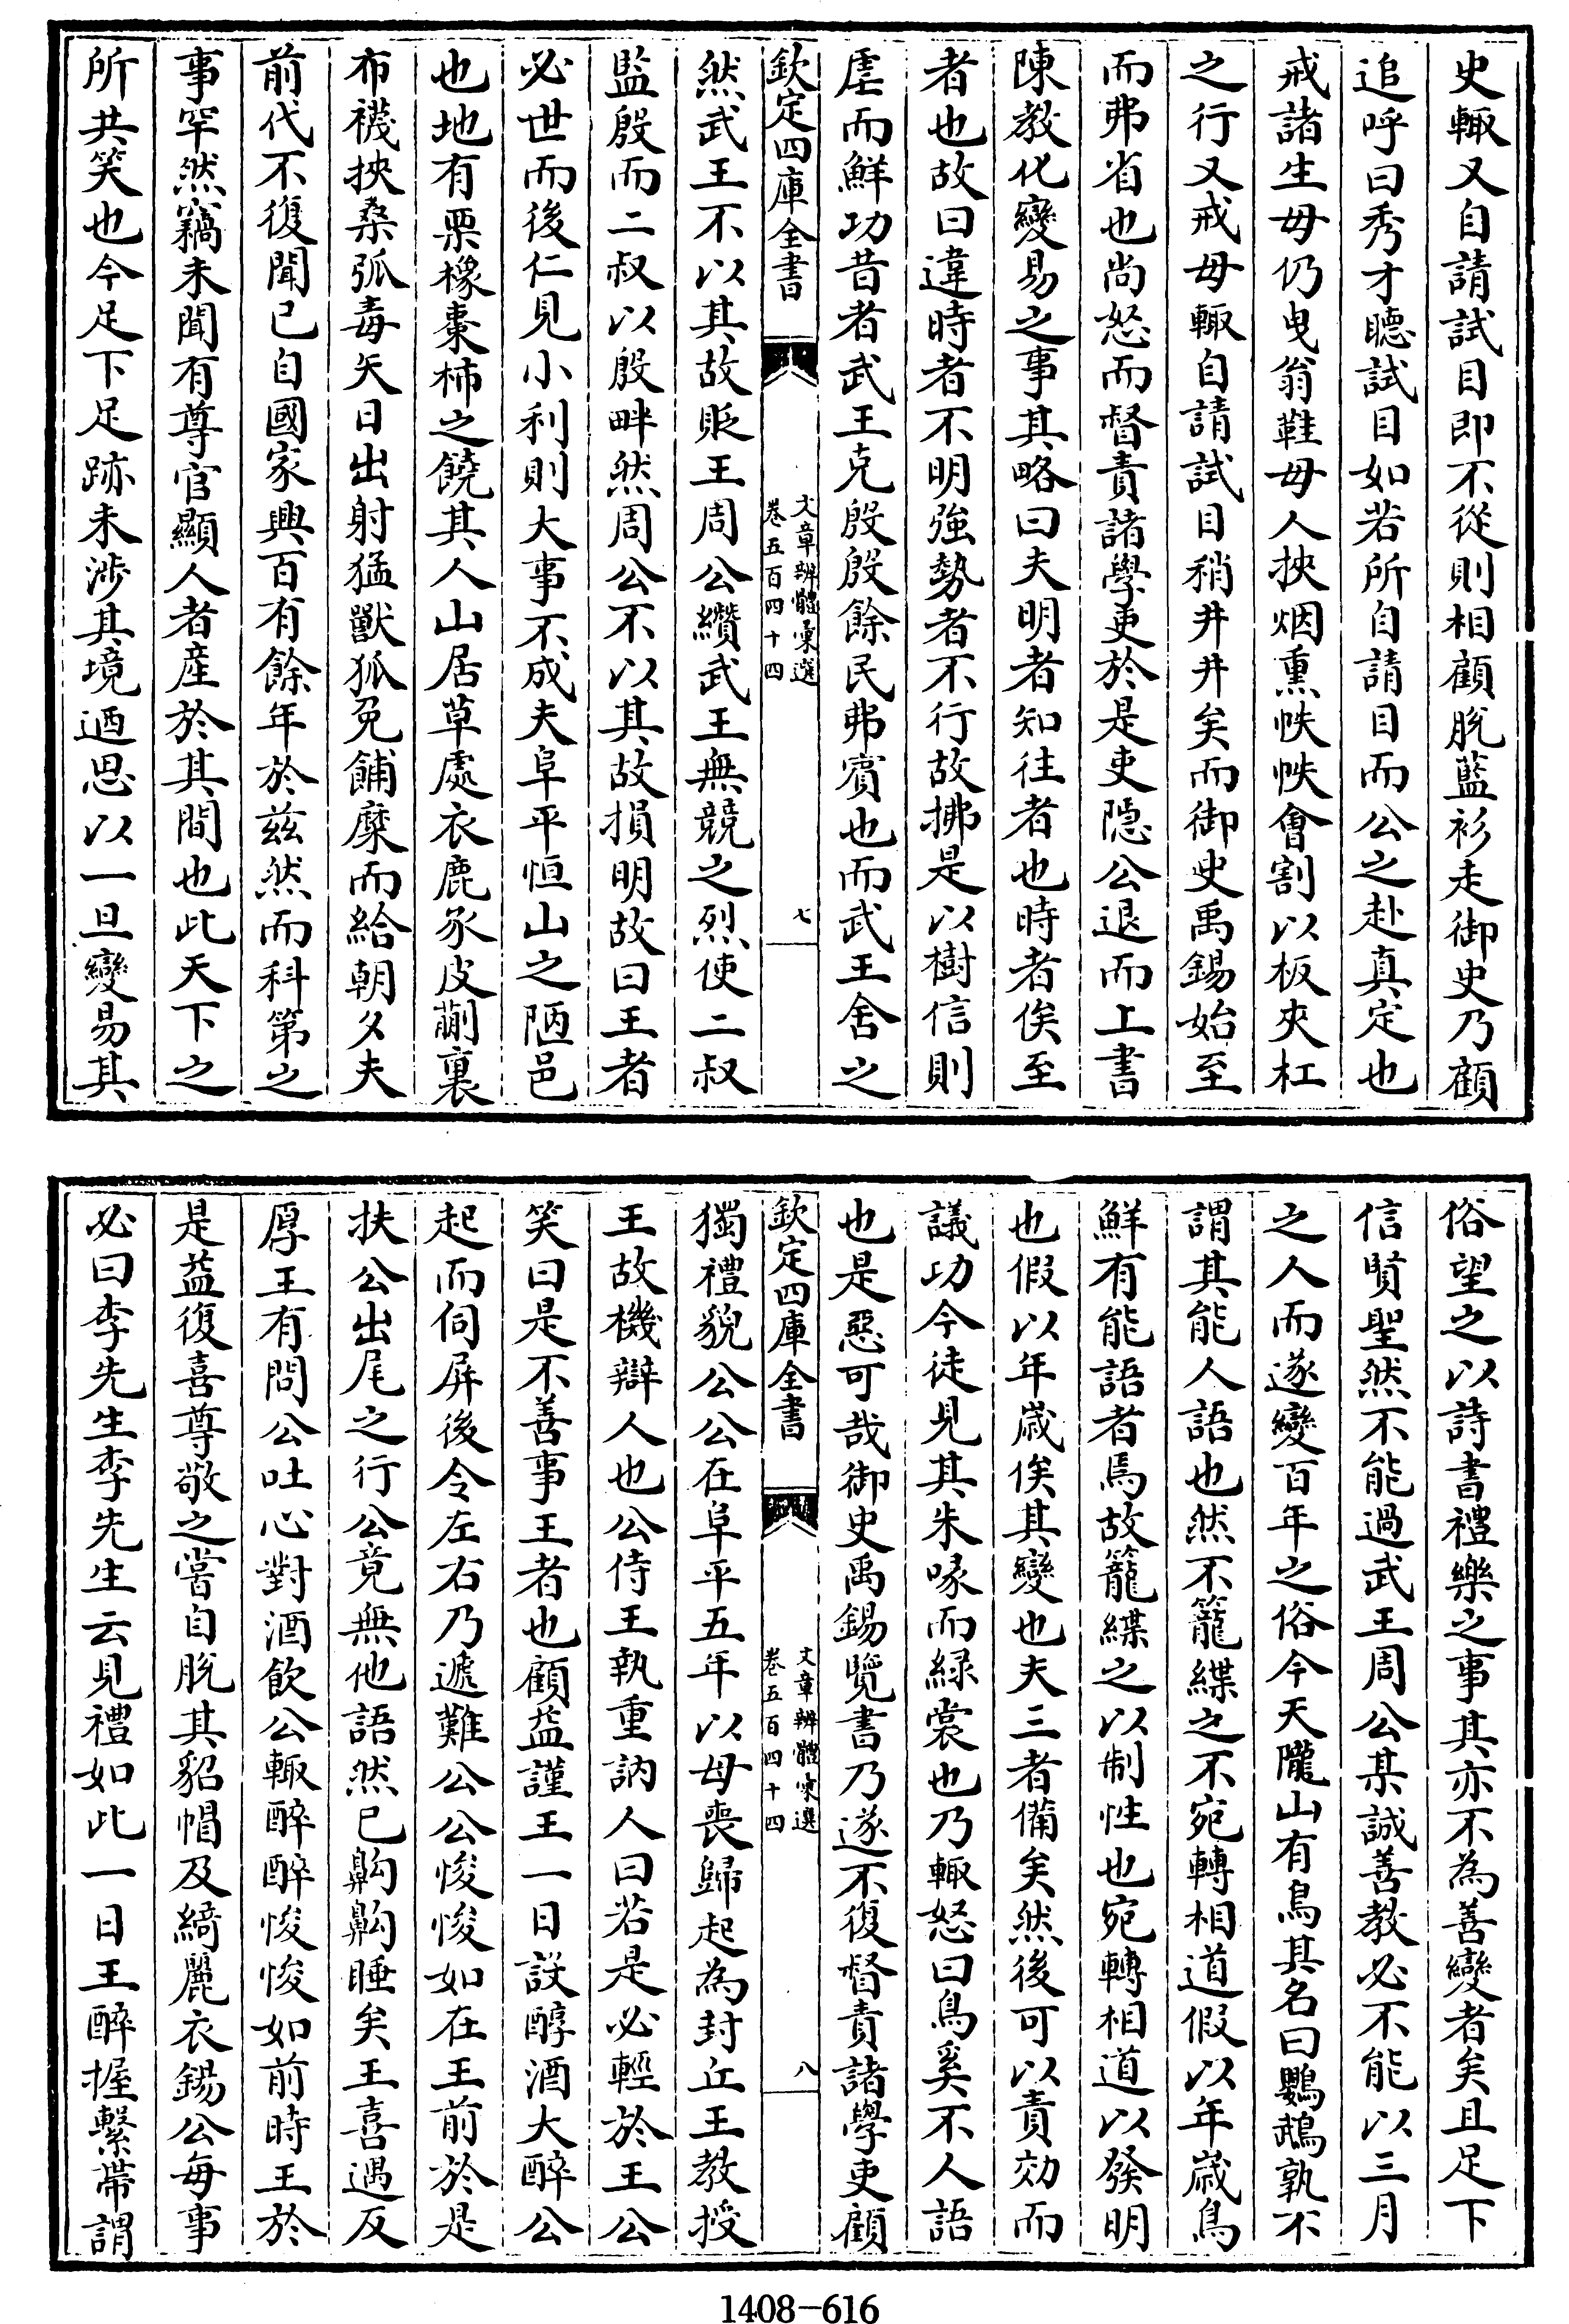 史輙又自請試目即不從則相顧脫藍衫走御史乃顧
追呼曰秀才聽試目如若所自請目而公之赴真定也
戒諸生毋仍曳翁鞋毋人挾烟熏帙帙會割以板夾杠
之行又戒毋輙自請試目稍井井矣而御史禹錫始至
而弗省也尚怒而督責諸學吏於是吏隐公退而上書
陳教化變易之事其略曰夫明者知往者也時者俟至
者也故曰違時者不明強勢者不行故拂是以樹信則
虐而鮮功昔者武王克殷殷餘民弗賓也而武王舍之
欽定四庫全書
文章辨體彙選
卷五百四十四
七
然武王不以其故貶王周公纘武王無競之烈使二叔
監殷而二叔以殷畔然周公不以其故損明故曰王者
必世而後仁見小利則大事不成夫阜平恒山之陋邑
也地有栗橡棗柿之饒其人山居草處衣鹿豕皮蒯裹
布襪挾桑弧毒矢日出射猛獸狐兔餔糜而給朝夕夫
前代不復聞已自國家興百有餘年於兹然而科第之
事罕然竊未聞有尊官顯人者產於其間也此天下之
所共笑也今足下足跡未涉其境迺思以一旦變易其
俗望之以詩書禮樂之事其亦不為善變者矣且足下
信賢聖然不能過武王周公某誠善教必不能以三月
之人而遂變百年之俗今天隴山有鳥其名曰鸚鵡孰不
謂其能人語也然不籠緤之不宛轉相道假以年歲鳥
鮮有能語者焉故籠緤之以制性也宛轉相道以發明
也假以年歲俟其變也夫三者備矣然後可以責効而
議功今徒見其朱喙而緑裳也乃輙怒曰鳥奚不人語
也是惡可哉御史禹錫覽書乃遂不復督責諸學吏顧
欽定四庫全書
文章辨體彙選
卷五百四十四
八
獨禮貌公公在阜平五年以母喪歸起為封丘王教授
王故機辯人也公侍王執重訥人曰若是必輕於王公
笑曰是不善事王者也顧益謹王一日設醇酒大醉公
起而伺屏後令左右乃遞難公公悛悛如在王前於是
扶公出尾之行公竟無他語然已齁齁睡矣王喜遇反
厚王有問公吐心對酒飲公輙醉醉悛悛如前時王於
是益復喜尊敬之嘗自脫其貂帽及綺麗衣錫公每事
必曰李先生李先生云見禮如此一日王醉握繫帶謂
1408-616